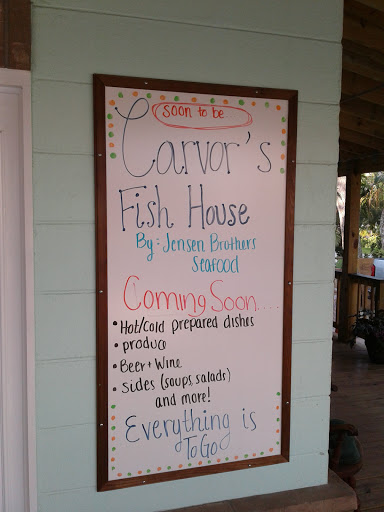 soon to be
Carvor's
Fish House
By: Jensen Brothers
Seafood
Coming Soon....
• Hot/cold prepared dishes
• produce
• Beer + Wine
• sides (soups, salads)
and more!
Everything is
To Go